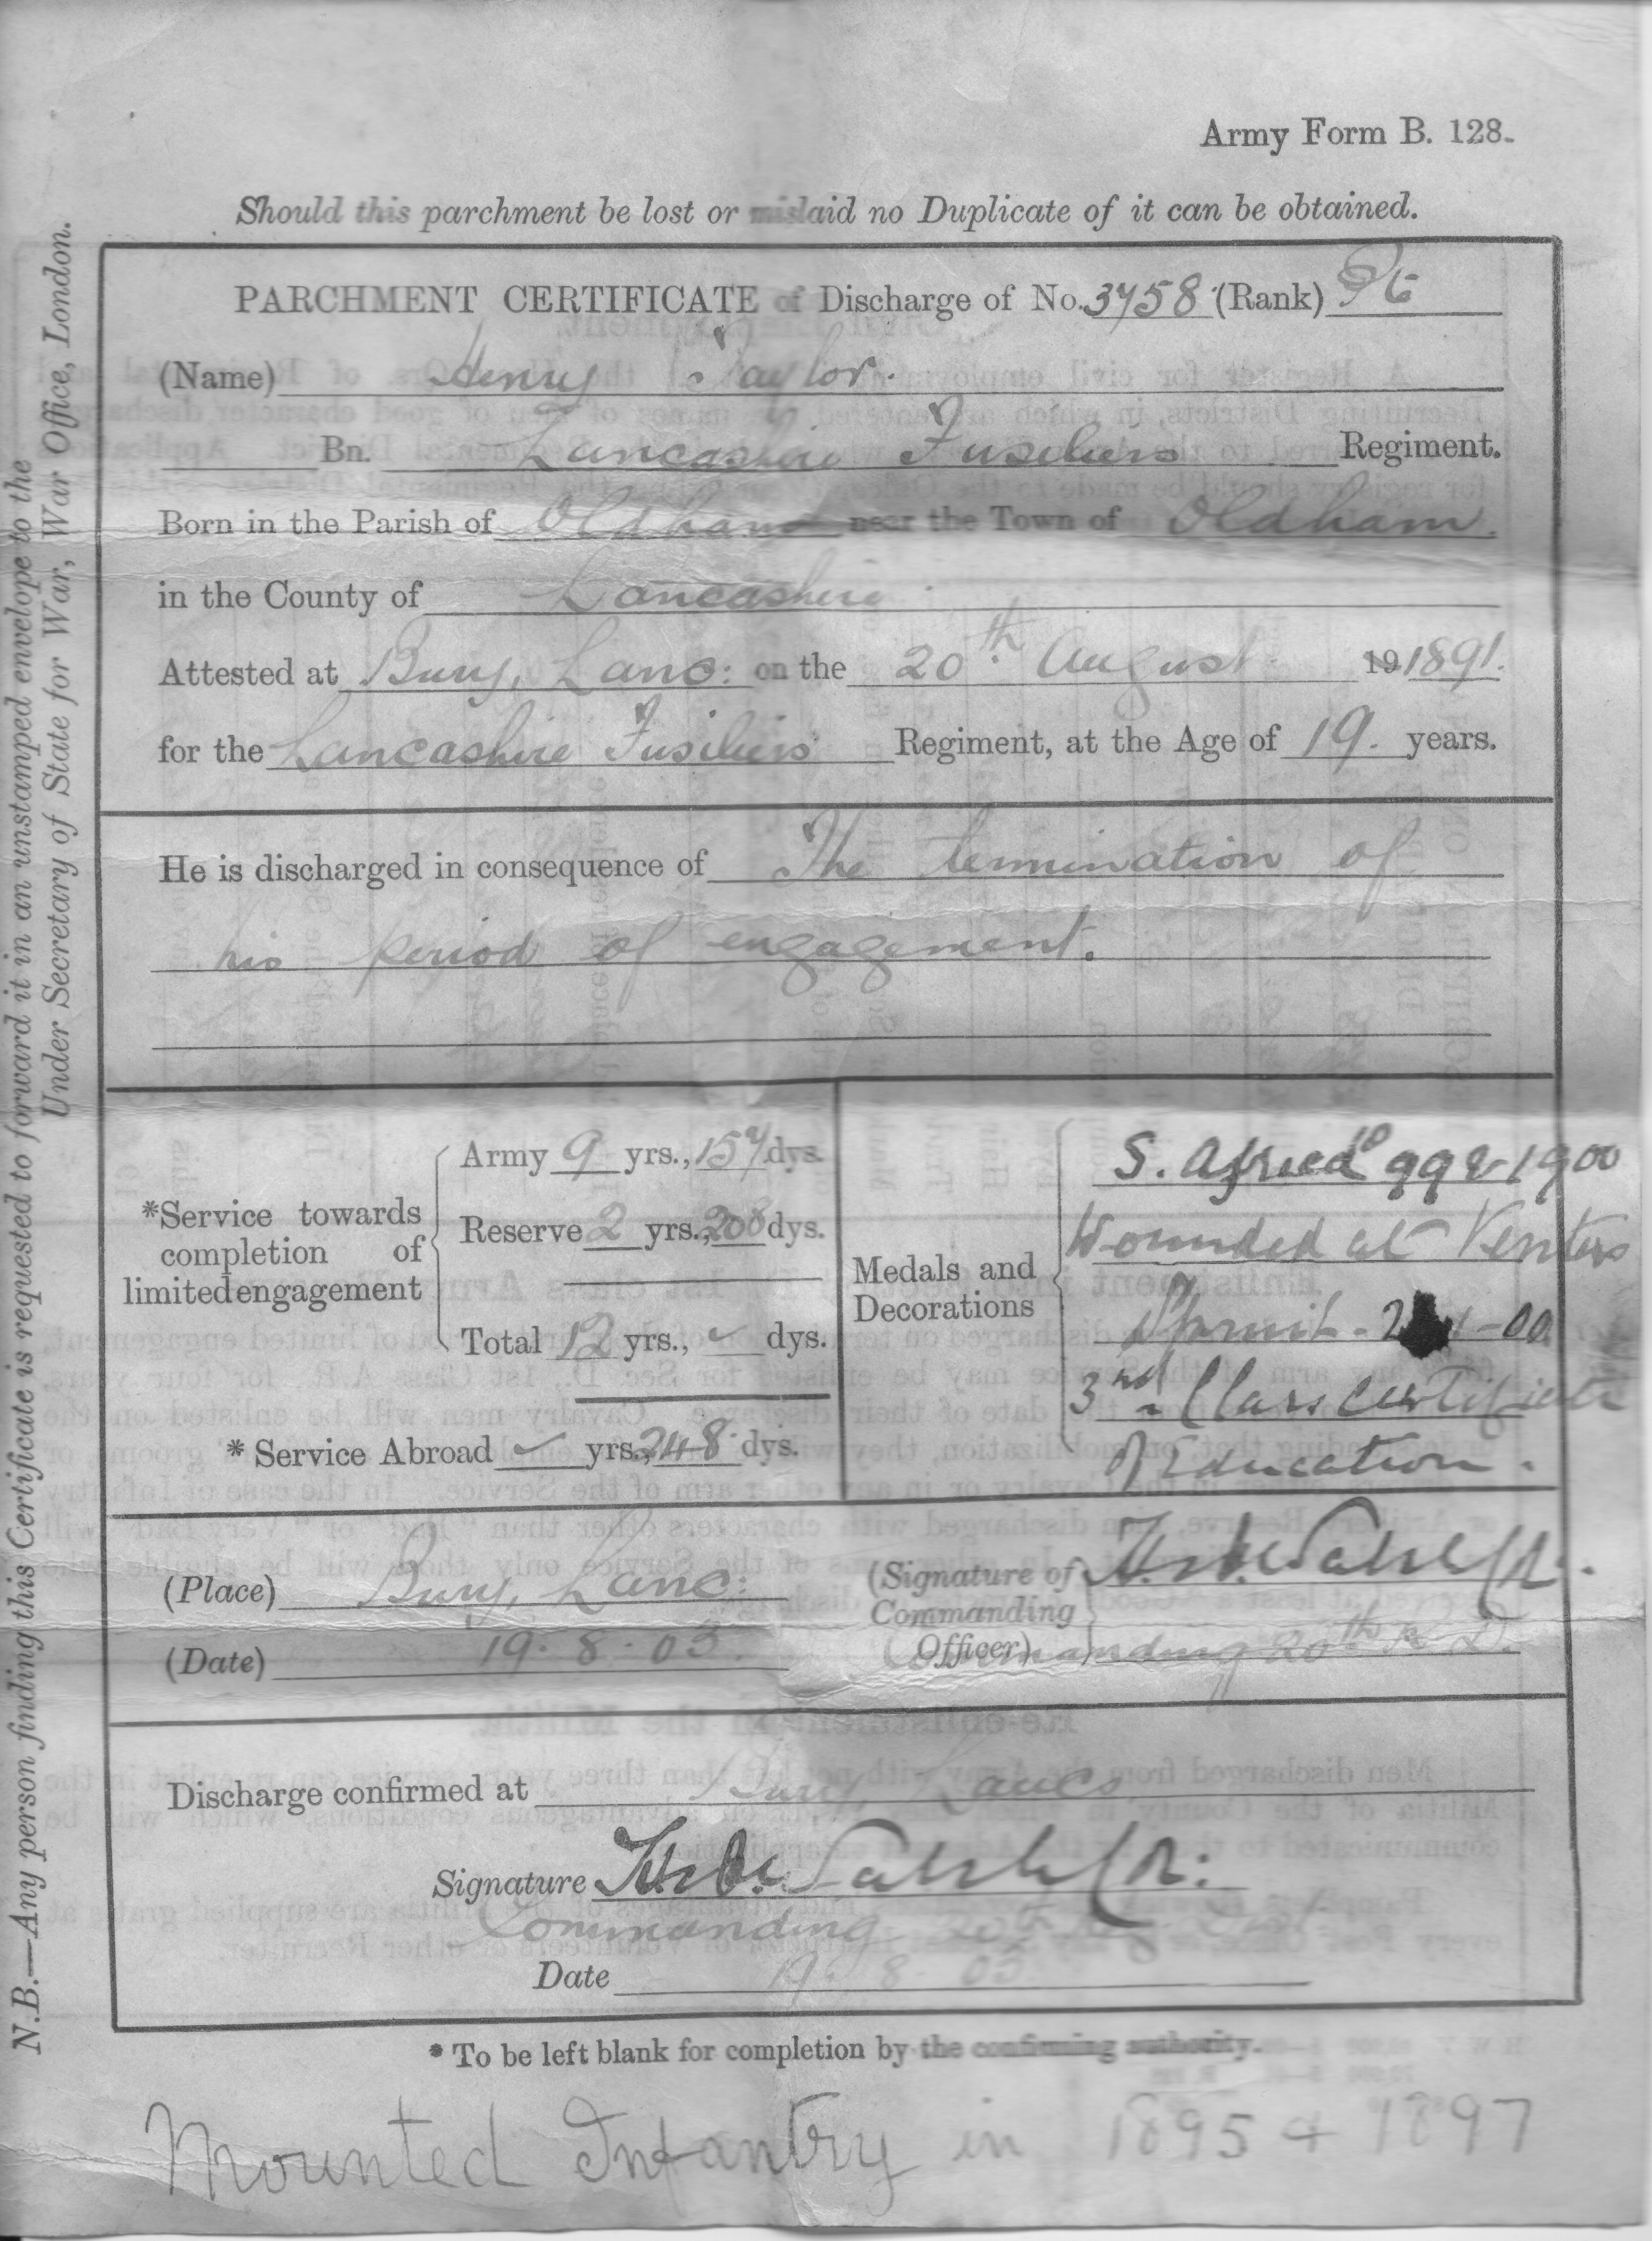 Army Form B. 128.
Should this parchment be lost or mislaid no Duplicate of it can be obtained.
PARCHMENT CERTIFICATE of Discharge of No. 3758 (Rank) Pte
(Name) Henry Taylor.
Bn. Lancashire Fusiliers Regiment.
Born in the Parish of Oldham near the Town of Oldham.
in the County of Lancashire
Attested at Bury, Lanc: on the 20th August 19 1891.
for the Lancashire Fusiliers Regiment, at the Age of 19. years.
He is discharged in consequence of The termination of
his period of engagement.
*Service towards completion of limited engagement
Army 9 yrs., 157 dys.
Reserve 2 yrs., 208 dys.
Total 12 yrs., dys.
* Service Abroad yrs., 248 dys.
Medals and Decorations
S. Africa 99 & 1900
Wounded at Venters
Spruit - -00
3rd Class Certificate
of Education.
(Place) Bury, Lanc:
(Date) 19.8.03.
(Signature of Commanding Officer)
Commanding 20th R. D.
Discharge confirmed at Bury Lancs
Signature
Commanding 20th Dist
Date 19. 8. 03
* To be left blank for completion by the confirming authority.
Mounted Infantry in 1895 + 1897
N.B.—Any person finding this Certificate is requested to forward it in an unstamped envelope to the
Under Secretary of State for War, War Office, London.